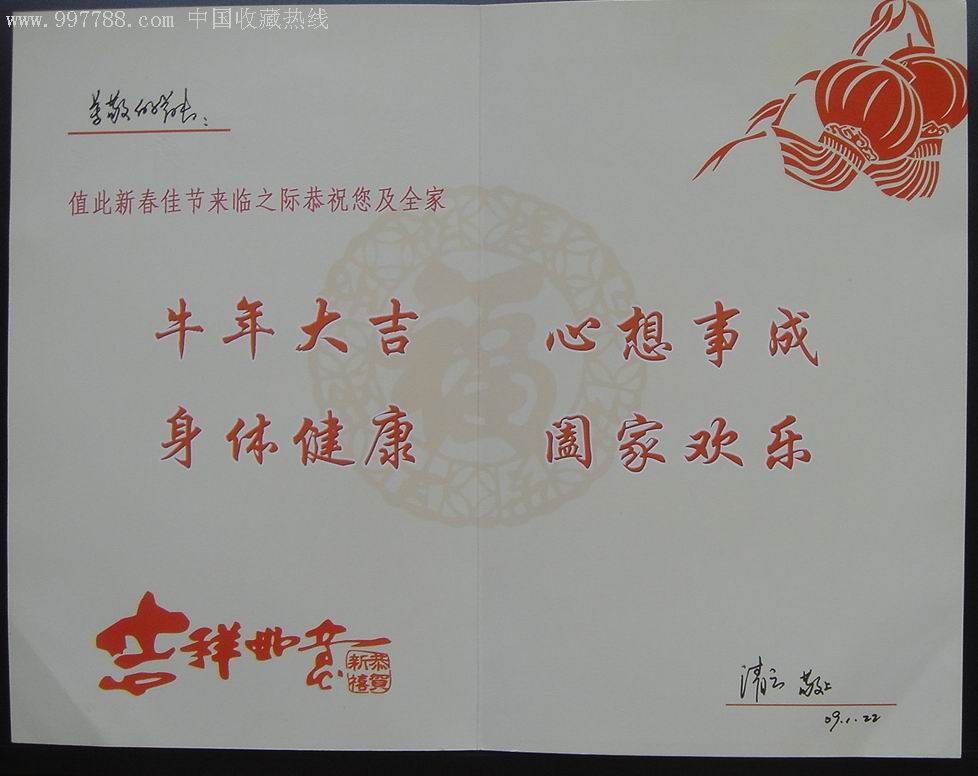 www.997788.com 中国收藏热线
尊敬的
值此新春佳节来临之际恭祝您及全家
牛年大吉 心想事成
身体健康 阖家欢乐
吉祥如意
恭贺新禧
清云 敬上
09.1.22